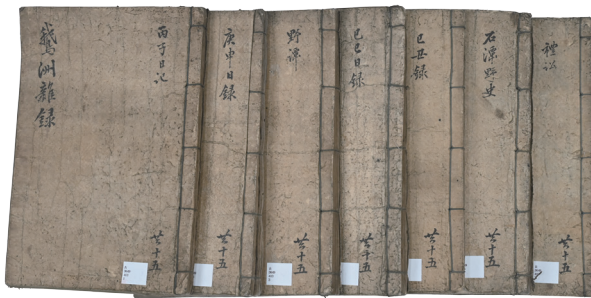 鵞洲雜録
丙子日记
共十五
庚申日録
共十五
野譚
共十五
己巳日録
共十五
己丑録
共十五
石潭野史
共十五
禮訟
共十五